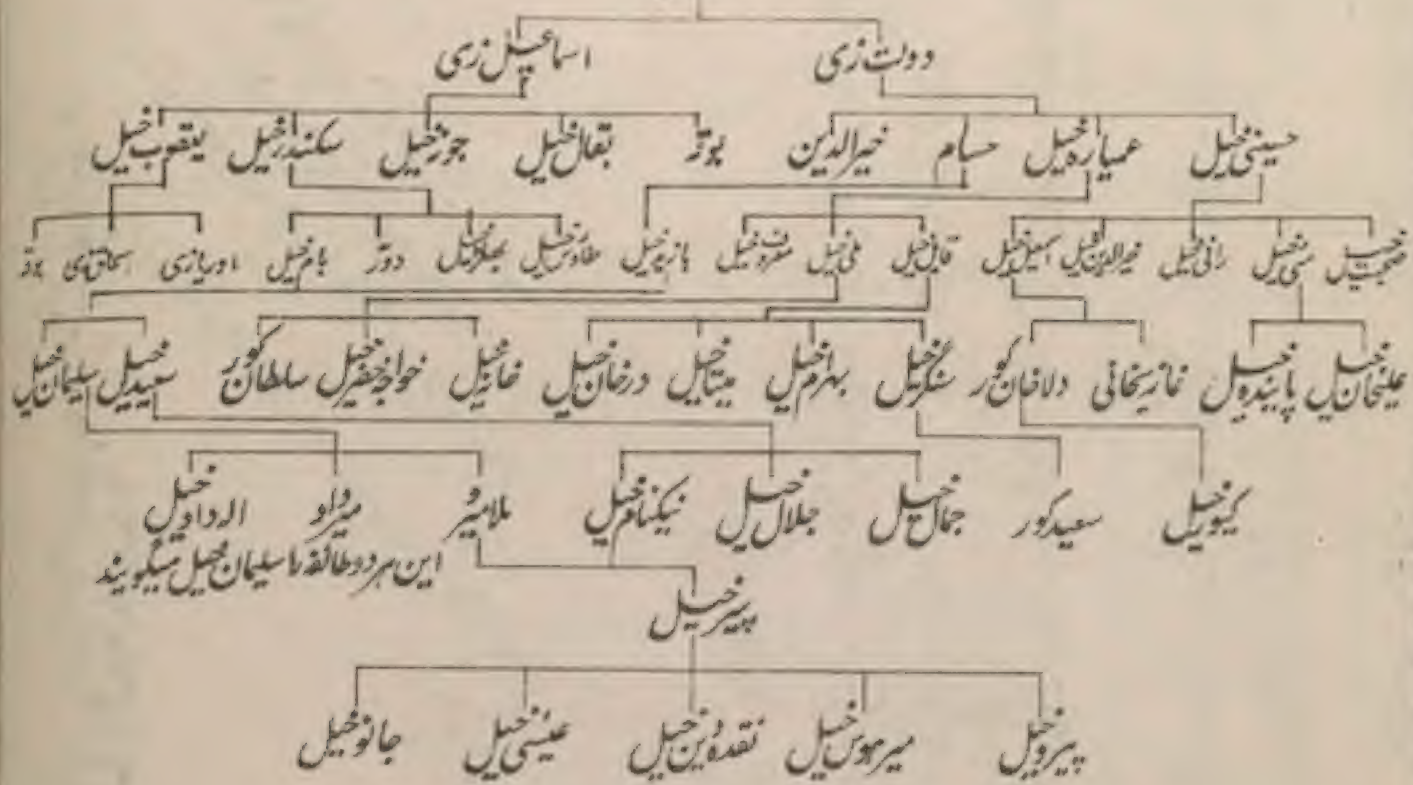 دولت زی اسماعیل زی
حسینی خیل عمیاره خیل حسام خیرالدین بقال خیل جوز خیل سکندر خیل یعقوب خیل
صحبت خیل رانی خیل خیرالدین خیل اسمعیل خیل قابل خیل ملی خیل مشرف خیل بازید خیل بام خیل اوریازی اسحاق زی
علیخان خیل پاینده خیل دلاخان کور سنگر خیل بهرام خیل میتا خیل درخان خیل خواجه خضر خیل سلطان کور سعید خیل سلیمان خیل
سعید کور جمال خیل جلال خیل نیکنام خیل ملا میر و میرداد اله داد خیل
این هر دو طائفه را سلیمان خیل میگویند
پیر خیل
پیرو خیل میرهوس خیل نقده دین خیل عیسی خیل جانو خیل